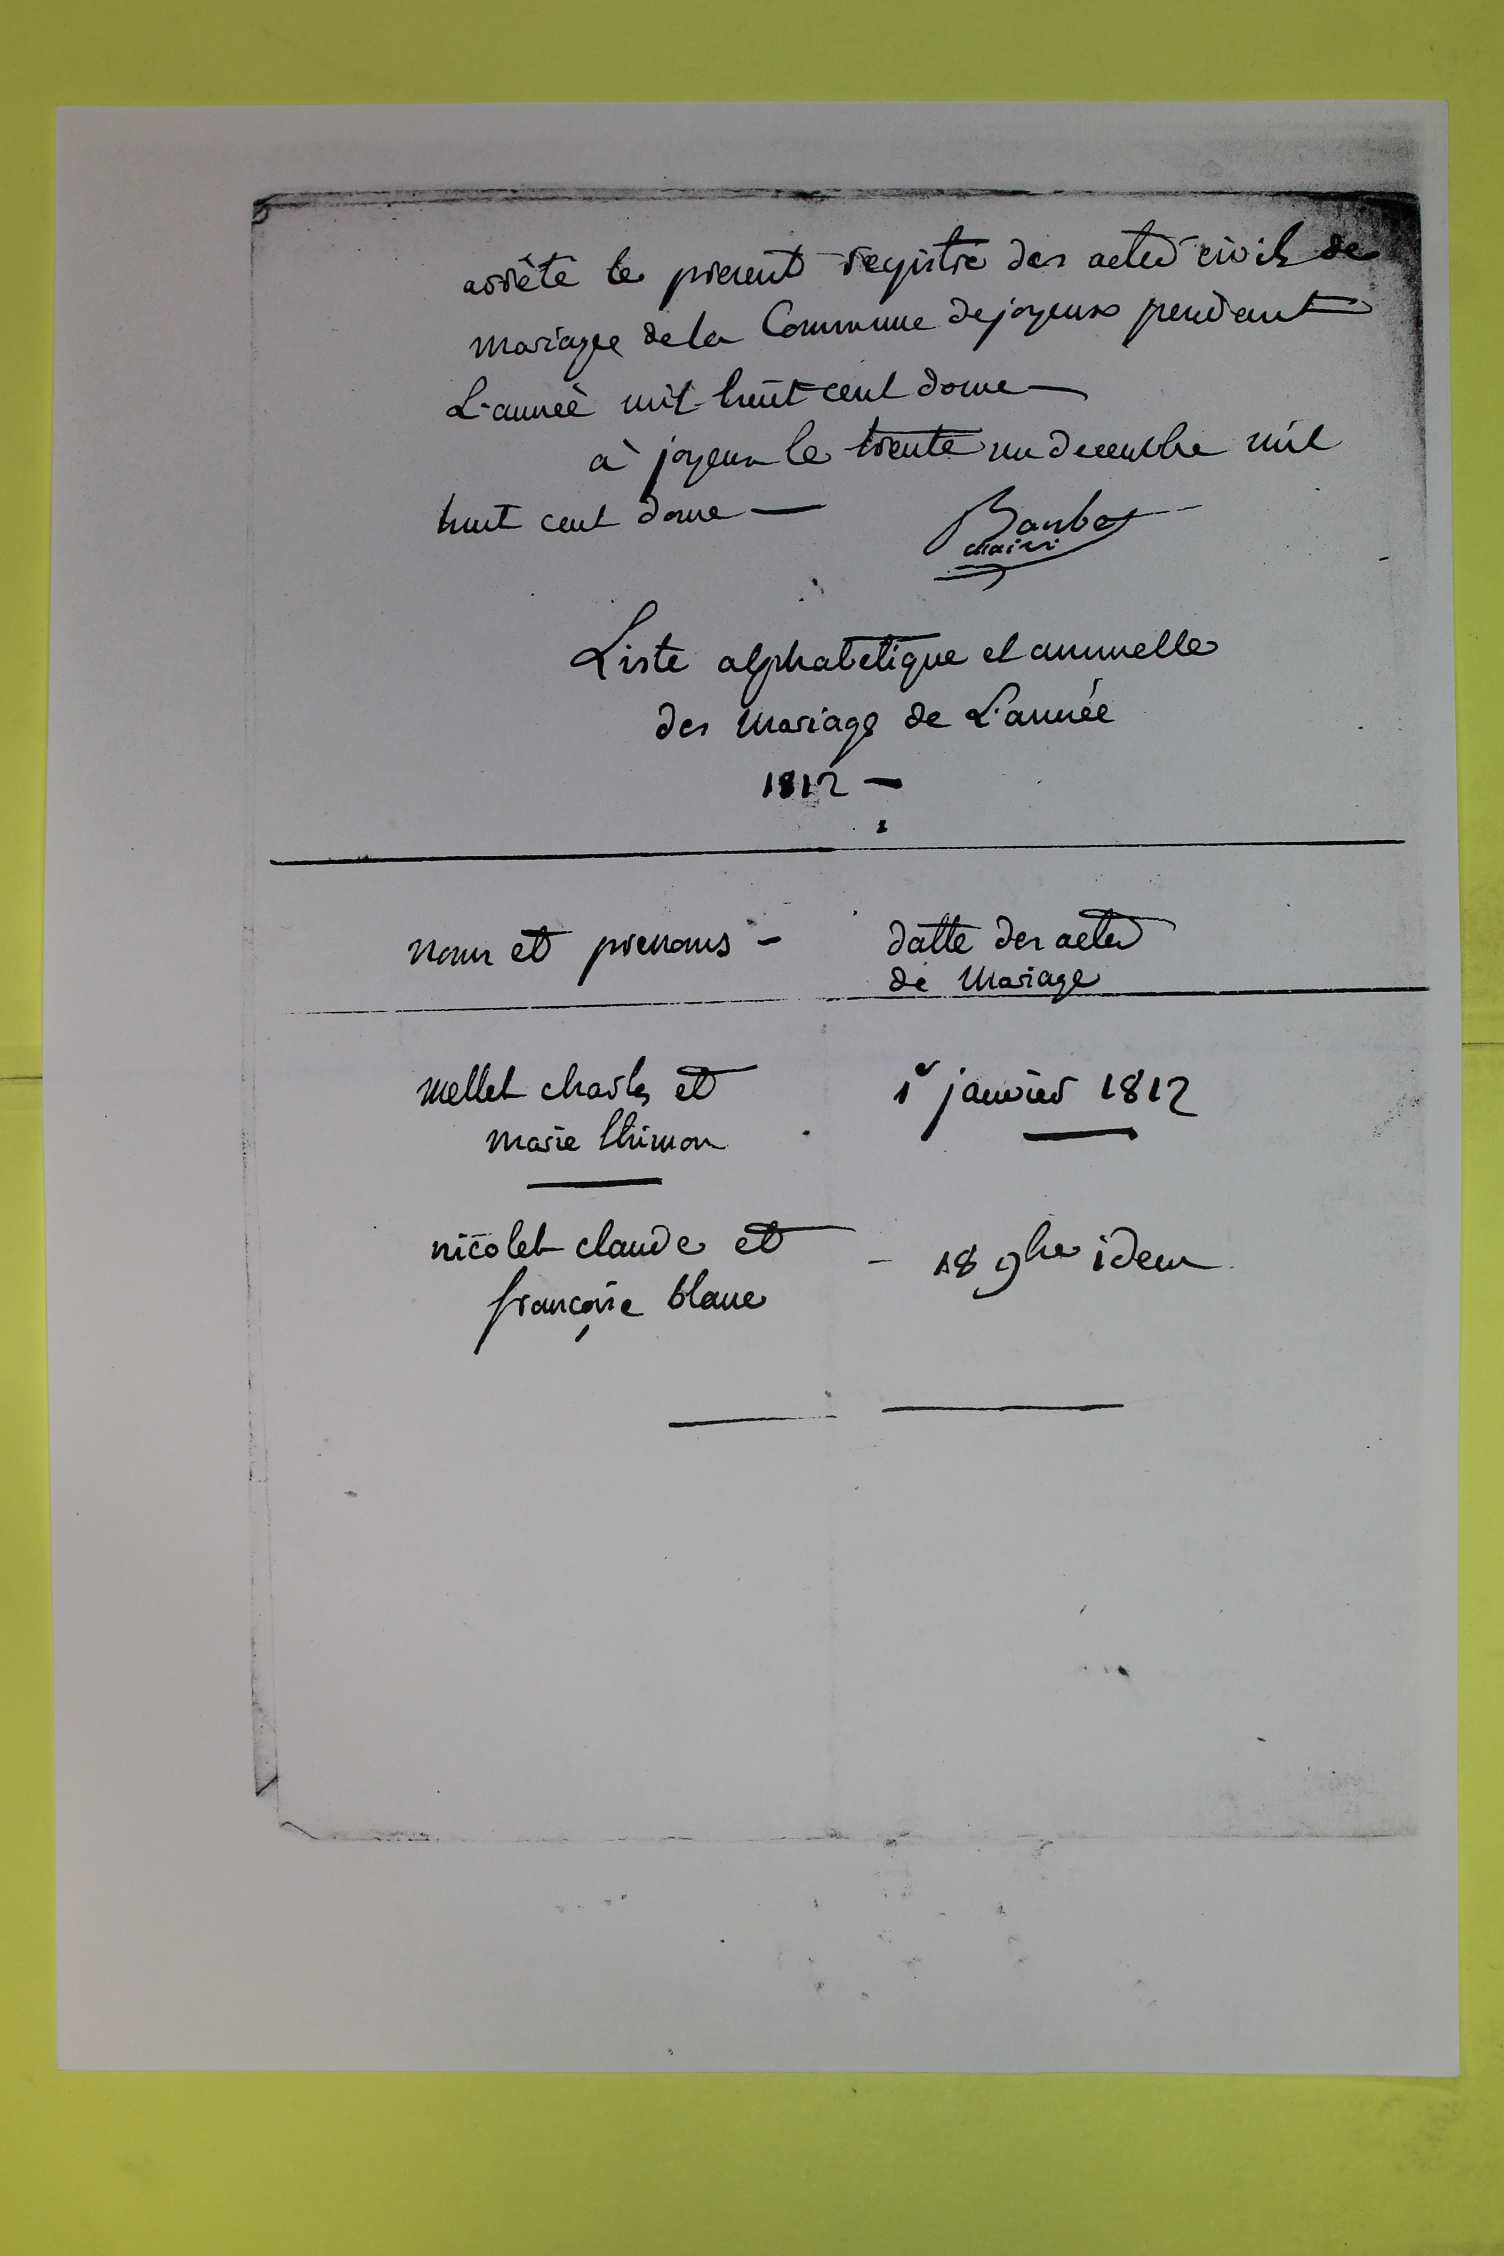 arrêté le present registre des actes civils de
mariage de la Commune de joyeux pendant
L'année mil huit cent douze —
à joyeux le trente un decembre mil
huit cent douze —
maire
Liste alphabetique et annuelle
des mariage de L'année
1812 —
noms et prenoms -
datte des actes
de mariage
mellet charles et
1er janvier 1812
marie thimon
nicolet claude et
- 18 9bre idem
françoise blanc